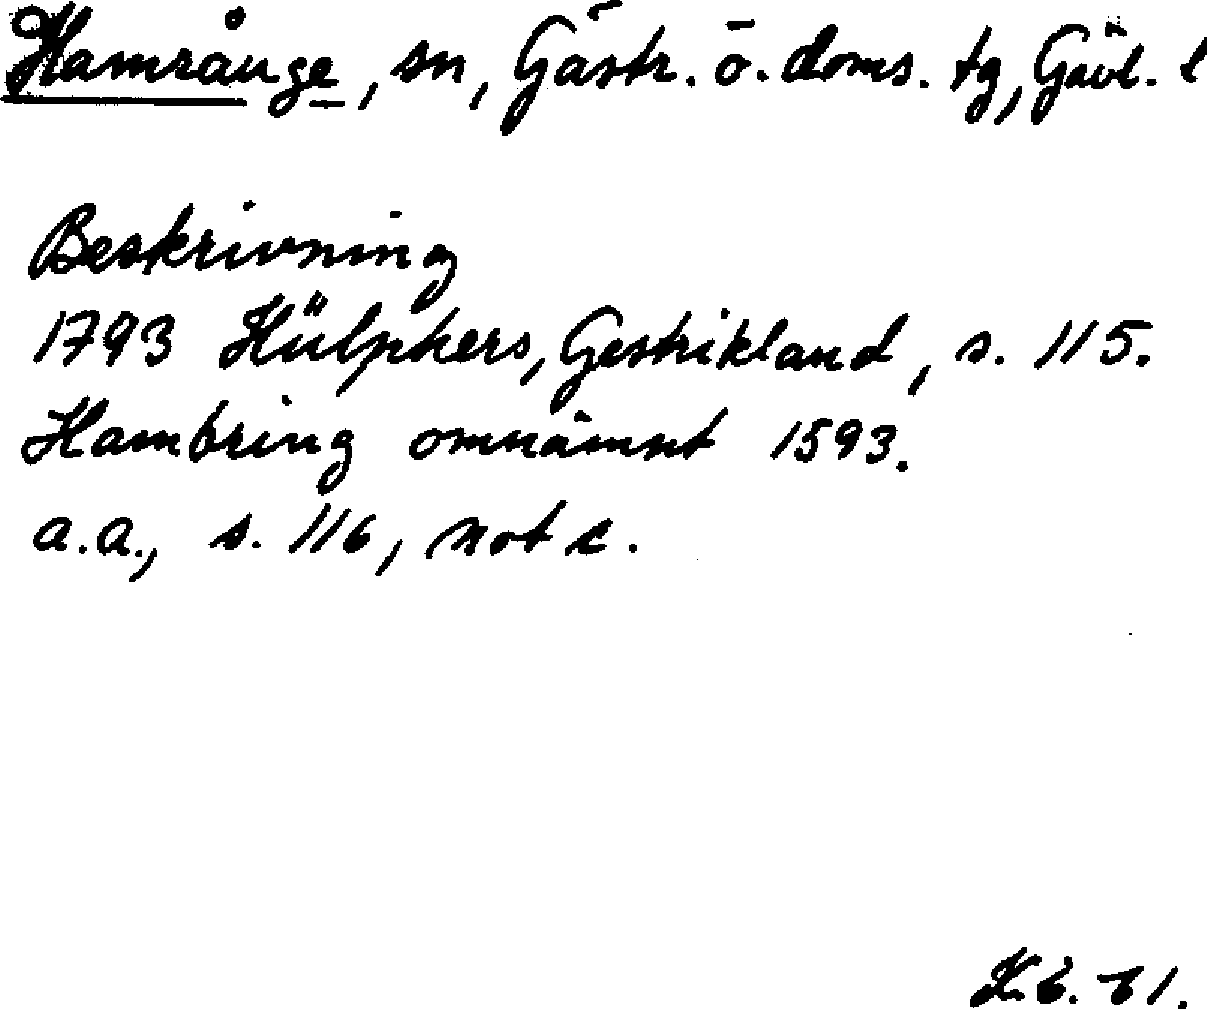 Hamrånge, sn, Gästr. ö. doms. tg, Gävl. l
Beskrivning
1793 Hülphers, Gestrikland, s. 115.
Hambring omnämnt 1593.
a.a., s. 116, not c.